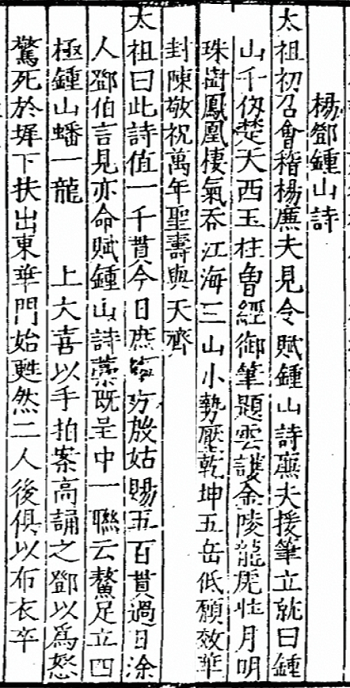 楊鄧鍾山詩
太祖初召會稽楊廉夫見令賦鍾山詩廉夫援筆立就曰鍾
山千仞楚天西玉柱魯經御筆題雲護金陵龍虎壯月明
珠樹鳳凰棲氣吞江海三山小勢壓乾坤五岳低願效華
封陳敬祝萬年聖壽與天齊
太祖曰此詩值一千貫今日庶務方殷姑賜五百貫過日涂
人鄧伯言見亦命賦鍾山詩藁既呈中一聯云鰲足立四
極鍾山蟠一龍　上大喜以手拍案高誦之鄧以爲怒
驚死於墀下扶出東華門始甦然二人後俱以布衣卒